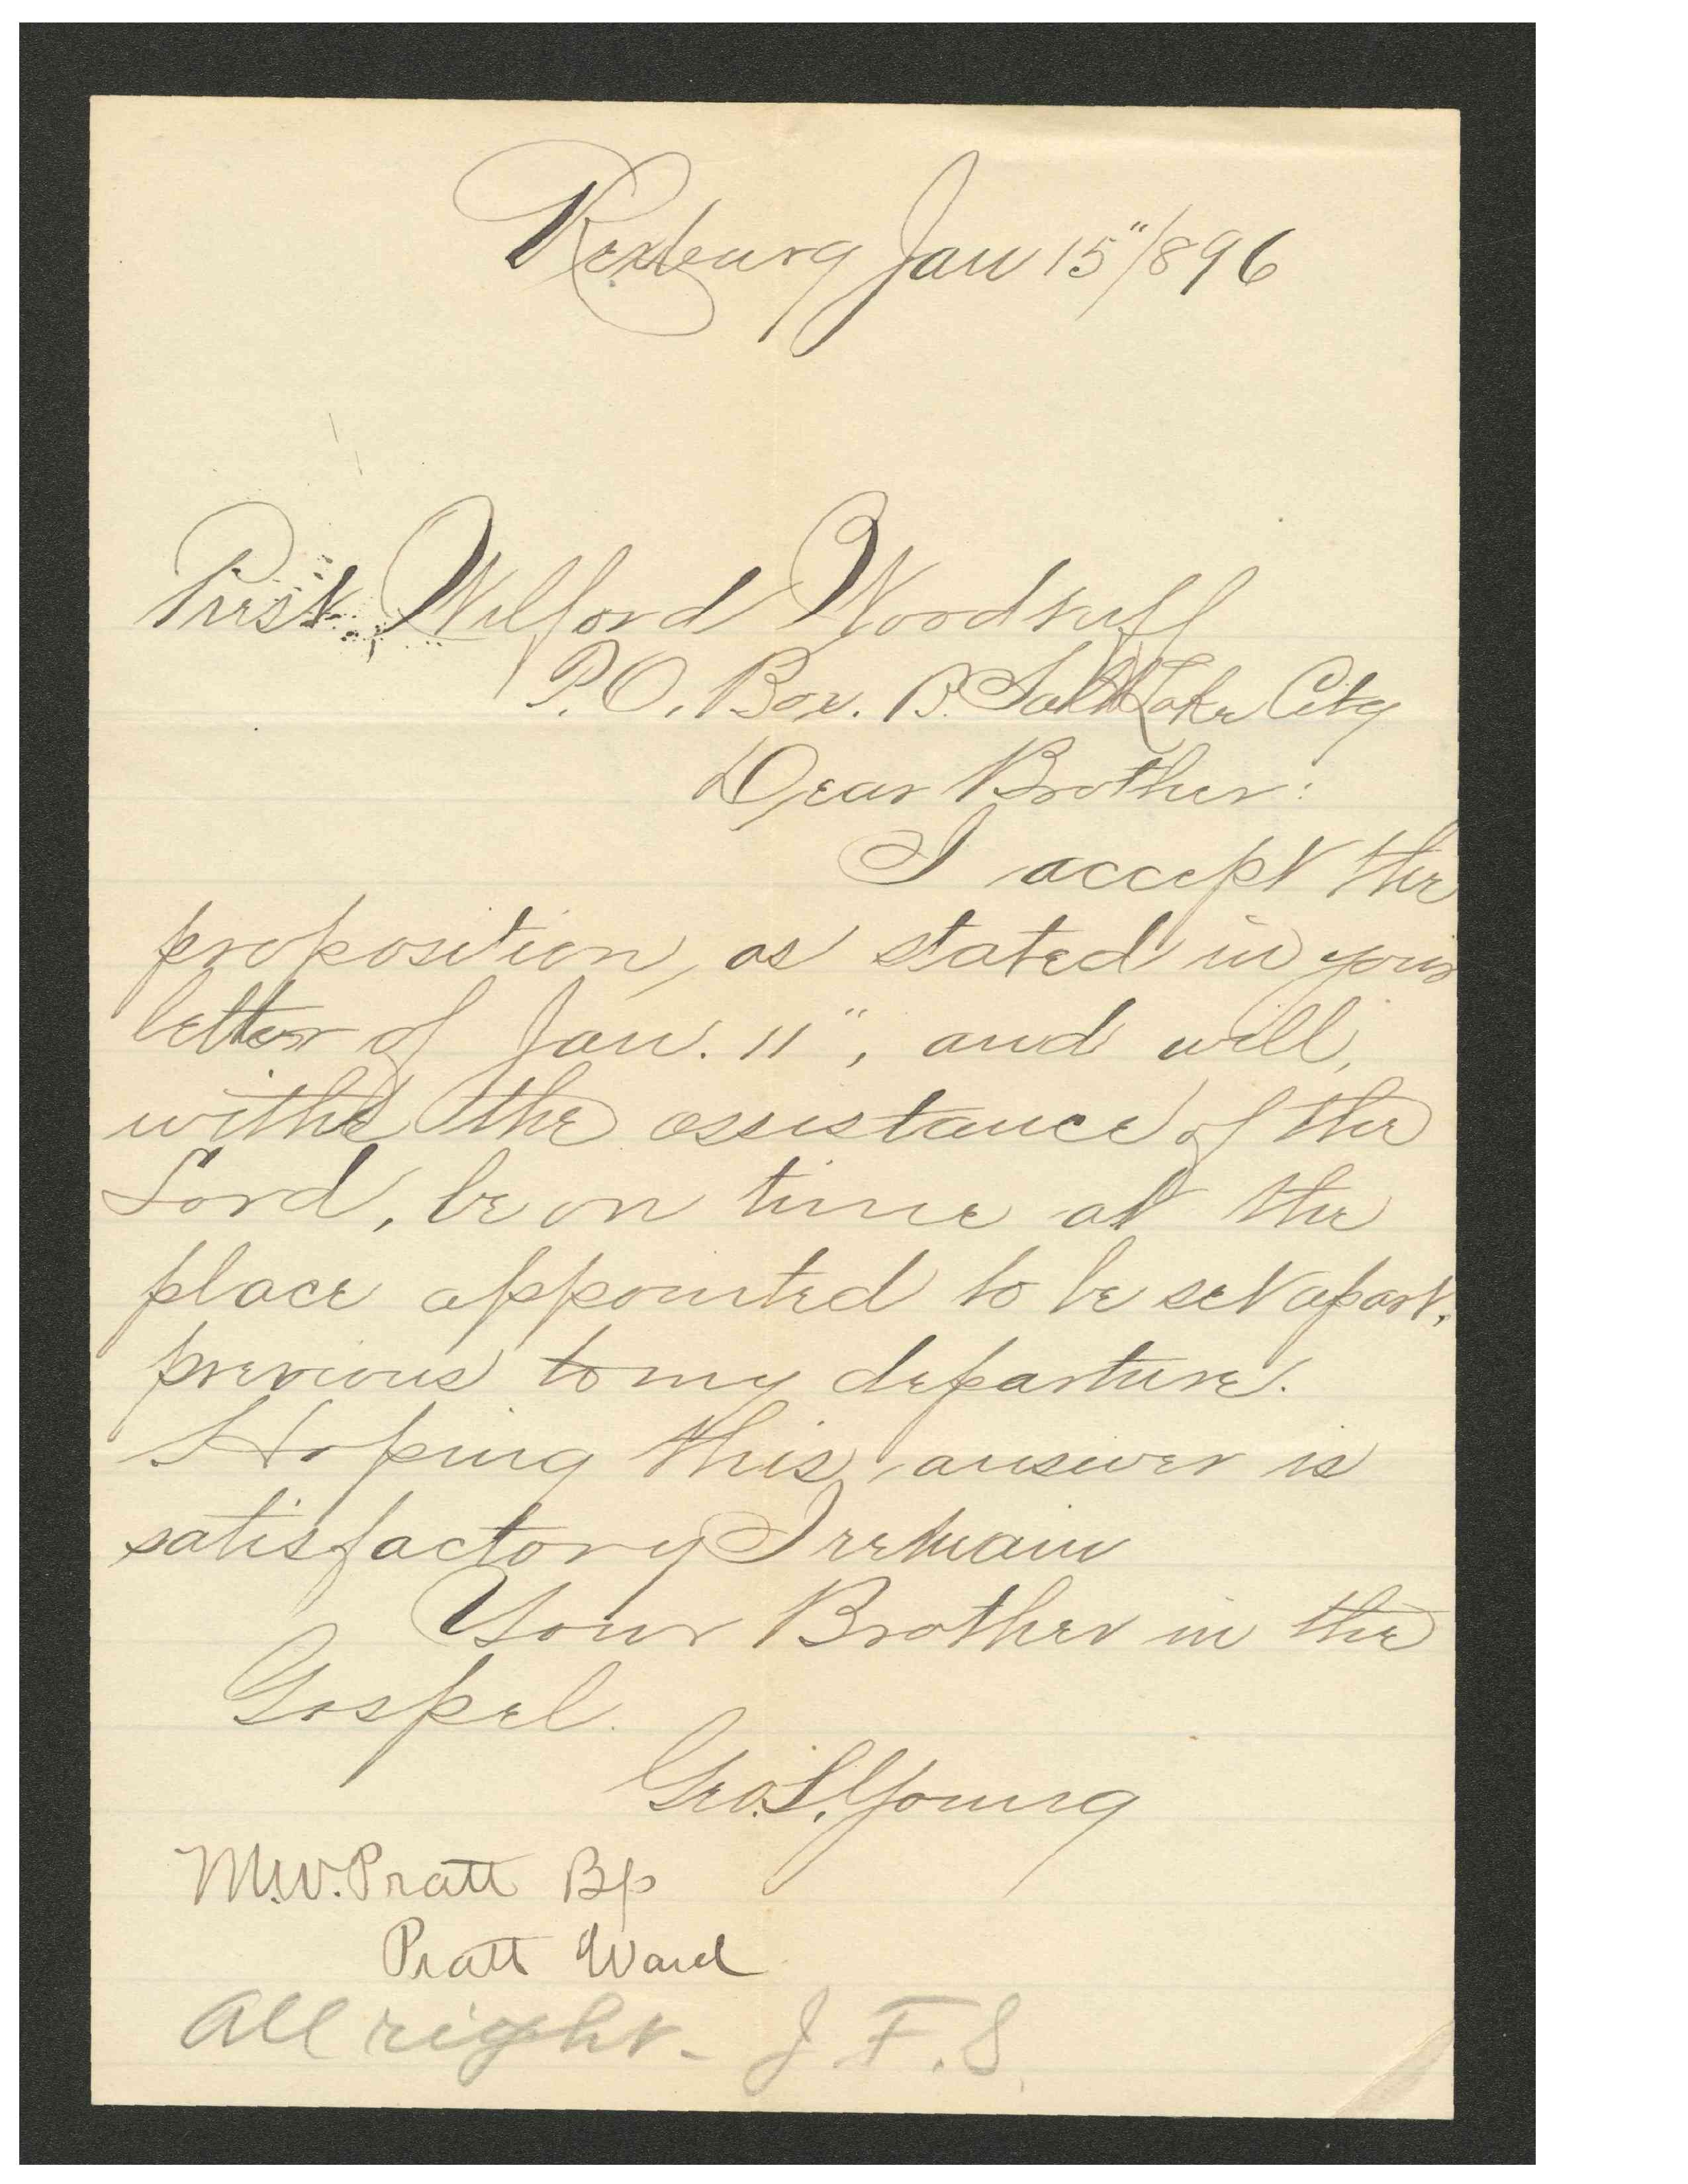 Rexburg Jan 15"/896
Prest. Wilford Woodruff
P.O. Box. B. Salt Lake City
Dear Brother:
I accept the
proposition, as stated in your
letter of Jan. 11", and will,
with the assistance of the
Lord, be on time at the
place appointed to be set apart,
previous to my departure.
Hoping this answer is
satisfactory I remain
Your Brother in the
Gospel.
Geo. S. Young
M.W. Pratt Bp
Pratt Ward
All right - J. F. S.